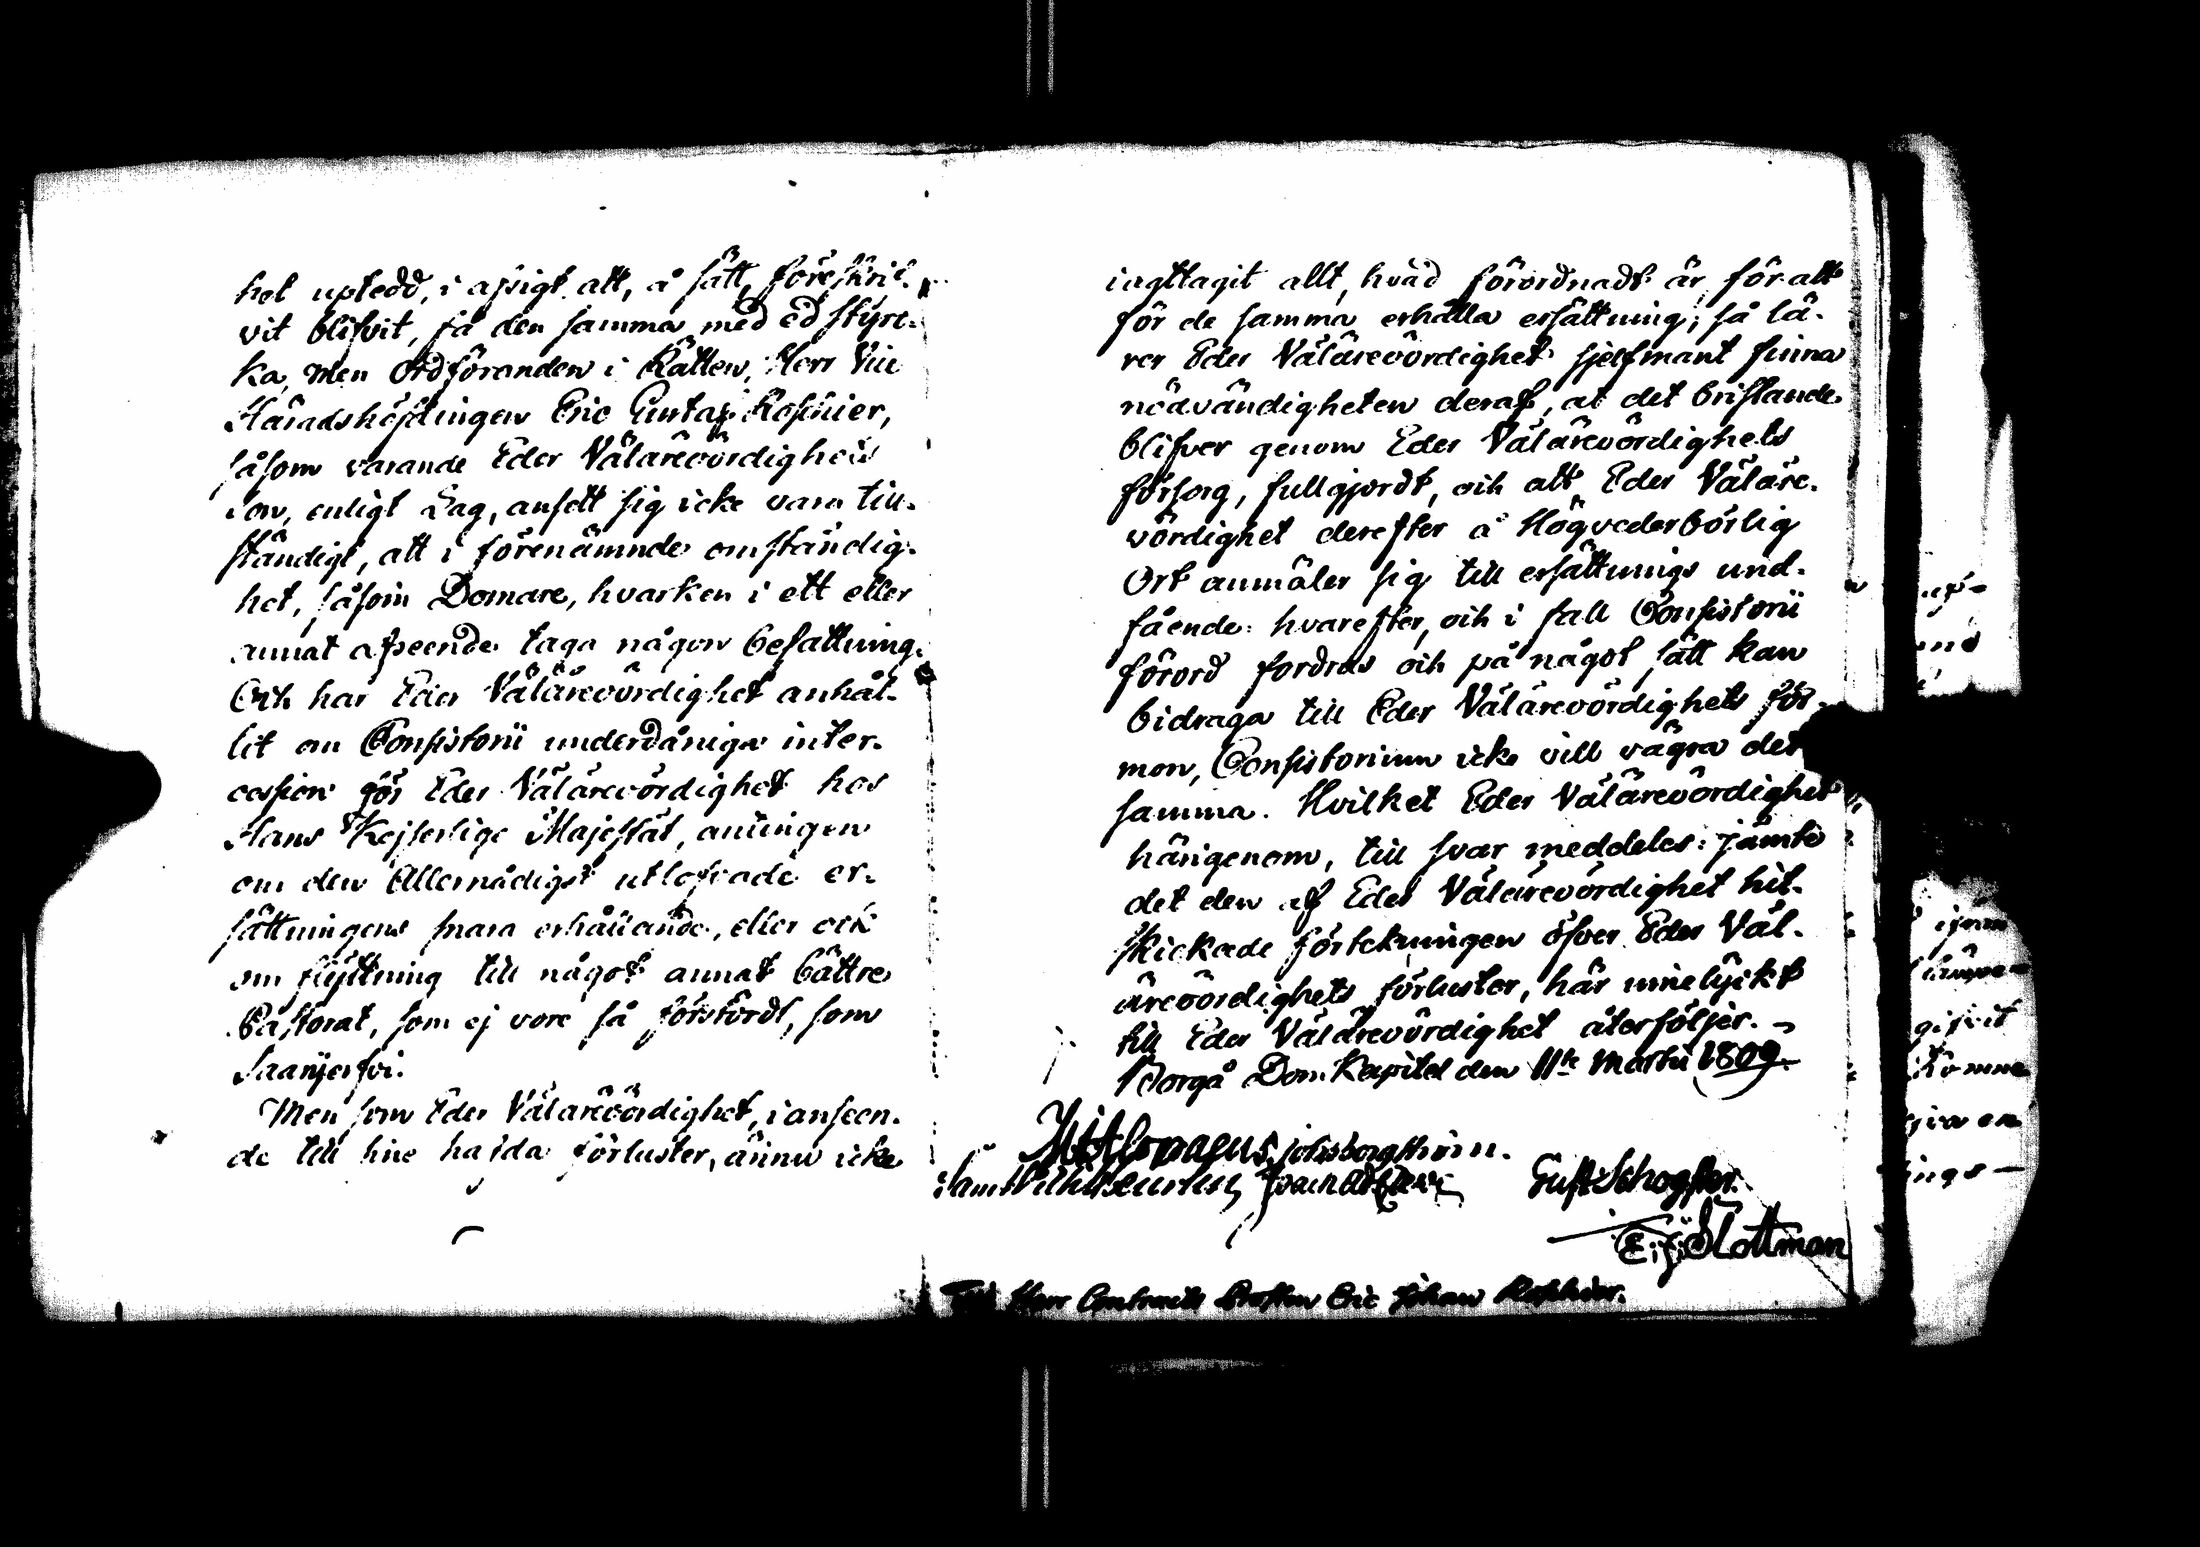 het uptedd, i afsigt att, å sätt, föreskrif-
vit blifvit, få den samma med ed styrc-
ka, men Ordföranden i Rätten, Herr Vice
Häradshöfdingen Eric Gustaf Rosenier,
såsom varande Eder Välärevördighets
son, enligt Lag, ansett sig icke vara till-
ständigt, att i förenämnde omständig-
het, såsom Domare, hvarken i ett eller
annat afseende taga någon befattning.
Och har Eder Välärevördighet anhål-
lit om Consistorii underdåniga inter-
cession för Eder Välärevördighet hos
Hans Kejserlige Majestät, antingen
om den Allernådigst utlofvade er-
sättningens snara erhållande, eller ock
om flyttning till något annat bättre
Pastorat, som ej vore så förstördt, som
Saarijerfvi.
Men som Eder Välärevördighet, i anseen-
de till sine hafda förluster, ännu icke
iagttagit allt, hvad förordnadt är för att
för de samma erhålla ersättning; så lä-
rer Eder Välärevördighet sjelfmant finna
nödvändigheten deraf, at det bristande
blifver genom Eder Välärevördighets
försorg, fullgjordt, och att Eder Väläre-
vördighet derefter å Högvederbörlig
Ort anmäler sig till ersättnings und-
fående: hvarefter, och i fall Consistorii
förord fordras och på något sätt kan
bidraga till Eder Välärevördighets för-
mon, Consistorium icke vill vägra det
samma. Hvilket Eder Välärevördighet
härigenom, till svar meddeles: jämte
det den af Eder Välärevördighet hit-
skickade förtekningen öfver Eder Väl-
ärevördighets förluster, här innelyckt
till Eder Välärevördighet återföljer.
Borgå DomKapitel den 11te Martii 1809.
Joh: Borgström.
Gust: Schogster.
E: J: Slottman
Till Herr Contracts Prosten Eric Johan Rosenier.